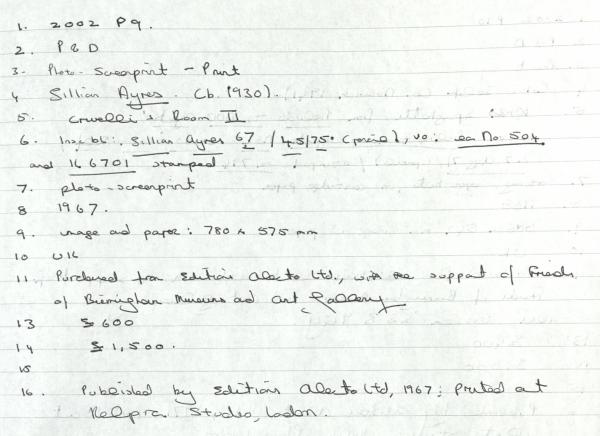 1. 2002 P9.
2. P & D
3. Photo-Screenprint - Print
4 Gillian Ayres. (b.1930).
5. Crivelli's Room II
6. Insc bl: Gillian Ayres 67 / 45/75. (pencil), vo: ea No 504
and 166701 stamped.
7. photo-screenprint
8 1967.
9. image and paper: 780 x 575 mm
10 UK
11 Purchased from Editions Alecto Ltd., with the support of Friends
of Birmingham Museums and Art Gallery
13 £600
14 £1,500.
15
16. Published by Editions Alecto Ltd, 1967; Printed at
Kelpra Studio, London.